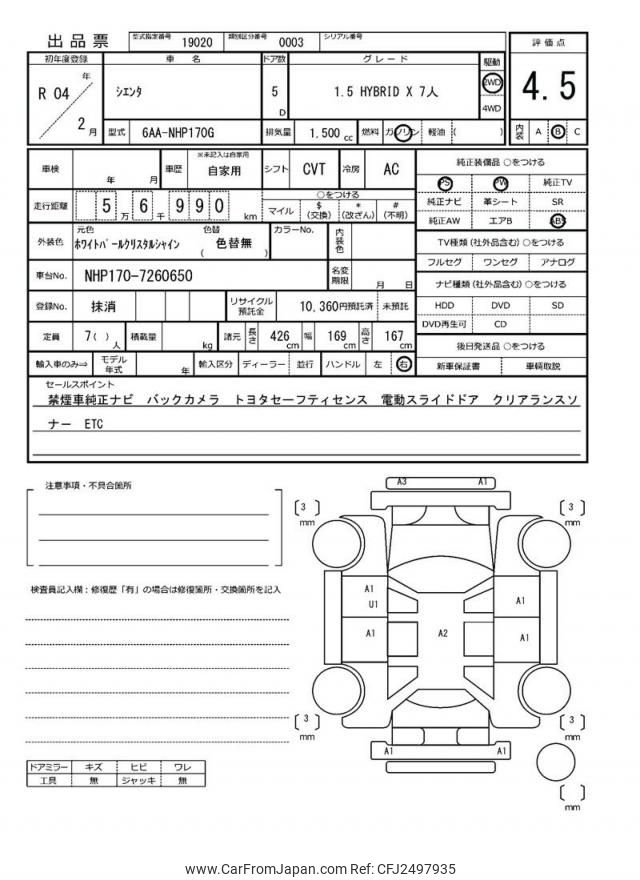 出品票 型式指定番号 19020 類別区分番号 0003 シリアル番号
初年度登録 車名 ドア数 グレード 駆動 評価点
R 04 年 2 月 シエンタ 5 D 1.5 HYBRID X 7人 2WD 4WD 4.5
型式 6AA-NHP170G 排気量 1.500 cc 燃料 ガソリン 軽油 ( ) 内装 A B C
車検 年 月 車歴 ※未記入は自家用 自家用 シフト CVT 冷房 AC
純正装備品 ○をつける
PS PW 純正TV
走行距離 5 万 6 千 9 9 0 km ○をつける
マイル $ (交換) * (改ざん) # (不明)
純正ナビ 革シート SR
純正AW エアB ABS
外装色 元色 ホワイトパールクリスタルシャイン 色替 ( 色替無 ) カラーNo. 内装色
TV種類 (社外品含む) ○をつける
フルセグ ワンセグ アナログ
車台No. NHP170-7260650 名変期限 月 日
ナビ種類 (社外品含む) ○をつける
登録No. 抹消 リサイクル預託金 10,360円預託済 未預託
HDD DVD SD
DVD再生可 CD
定員 7( ) 人 積載量 kg 諸元 長さ 426 cm 幅 169 cm 高さ 167 cm
後日発送品 ○をつける
輸入車のみ⇒ モデル年式 年 輸入区分 ディーラー 並行 ハンドル 左 右
新車保証書 車輌取説
セールスポイント
禁煙車純正ナビ バックカメラ トヨタセーフティセンス 電動スライドドア クリアランスソ
ナー ETC
注意事項・不具合箇所
検査員記入欄：修復歴「有」の場合は修復箇所・交換箇所を記入
A3 A1
[ 3 ] mm [ 3 ] mm
A1
U1
A1
A1
A2
A1
[ 3 ] mm [ 3 ] mm
A1 A1
[ ] mm
ドアミラー キズ ヒビ ワレ
工具 無 ジャッキ 無
www.CarFromJapan.com Ref: CFJ2497935